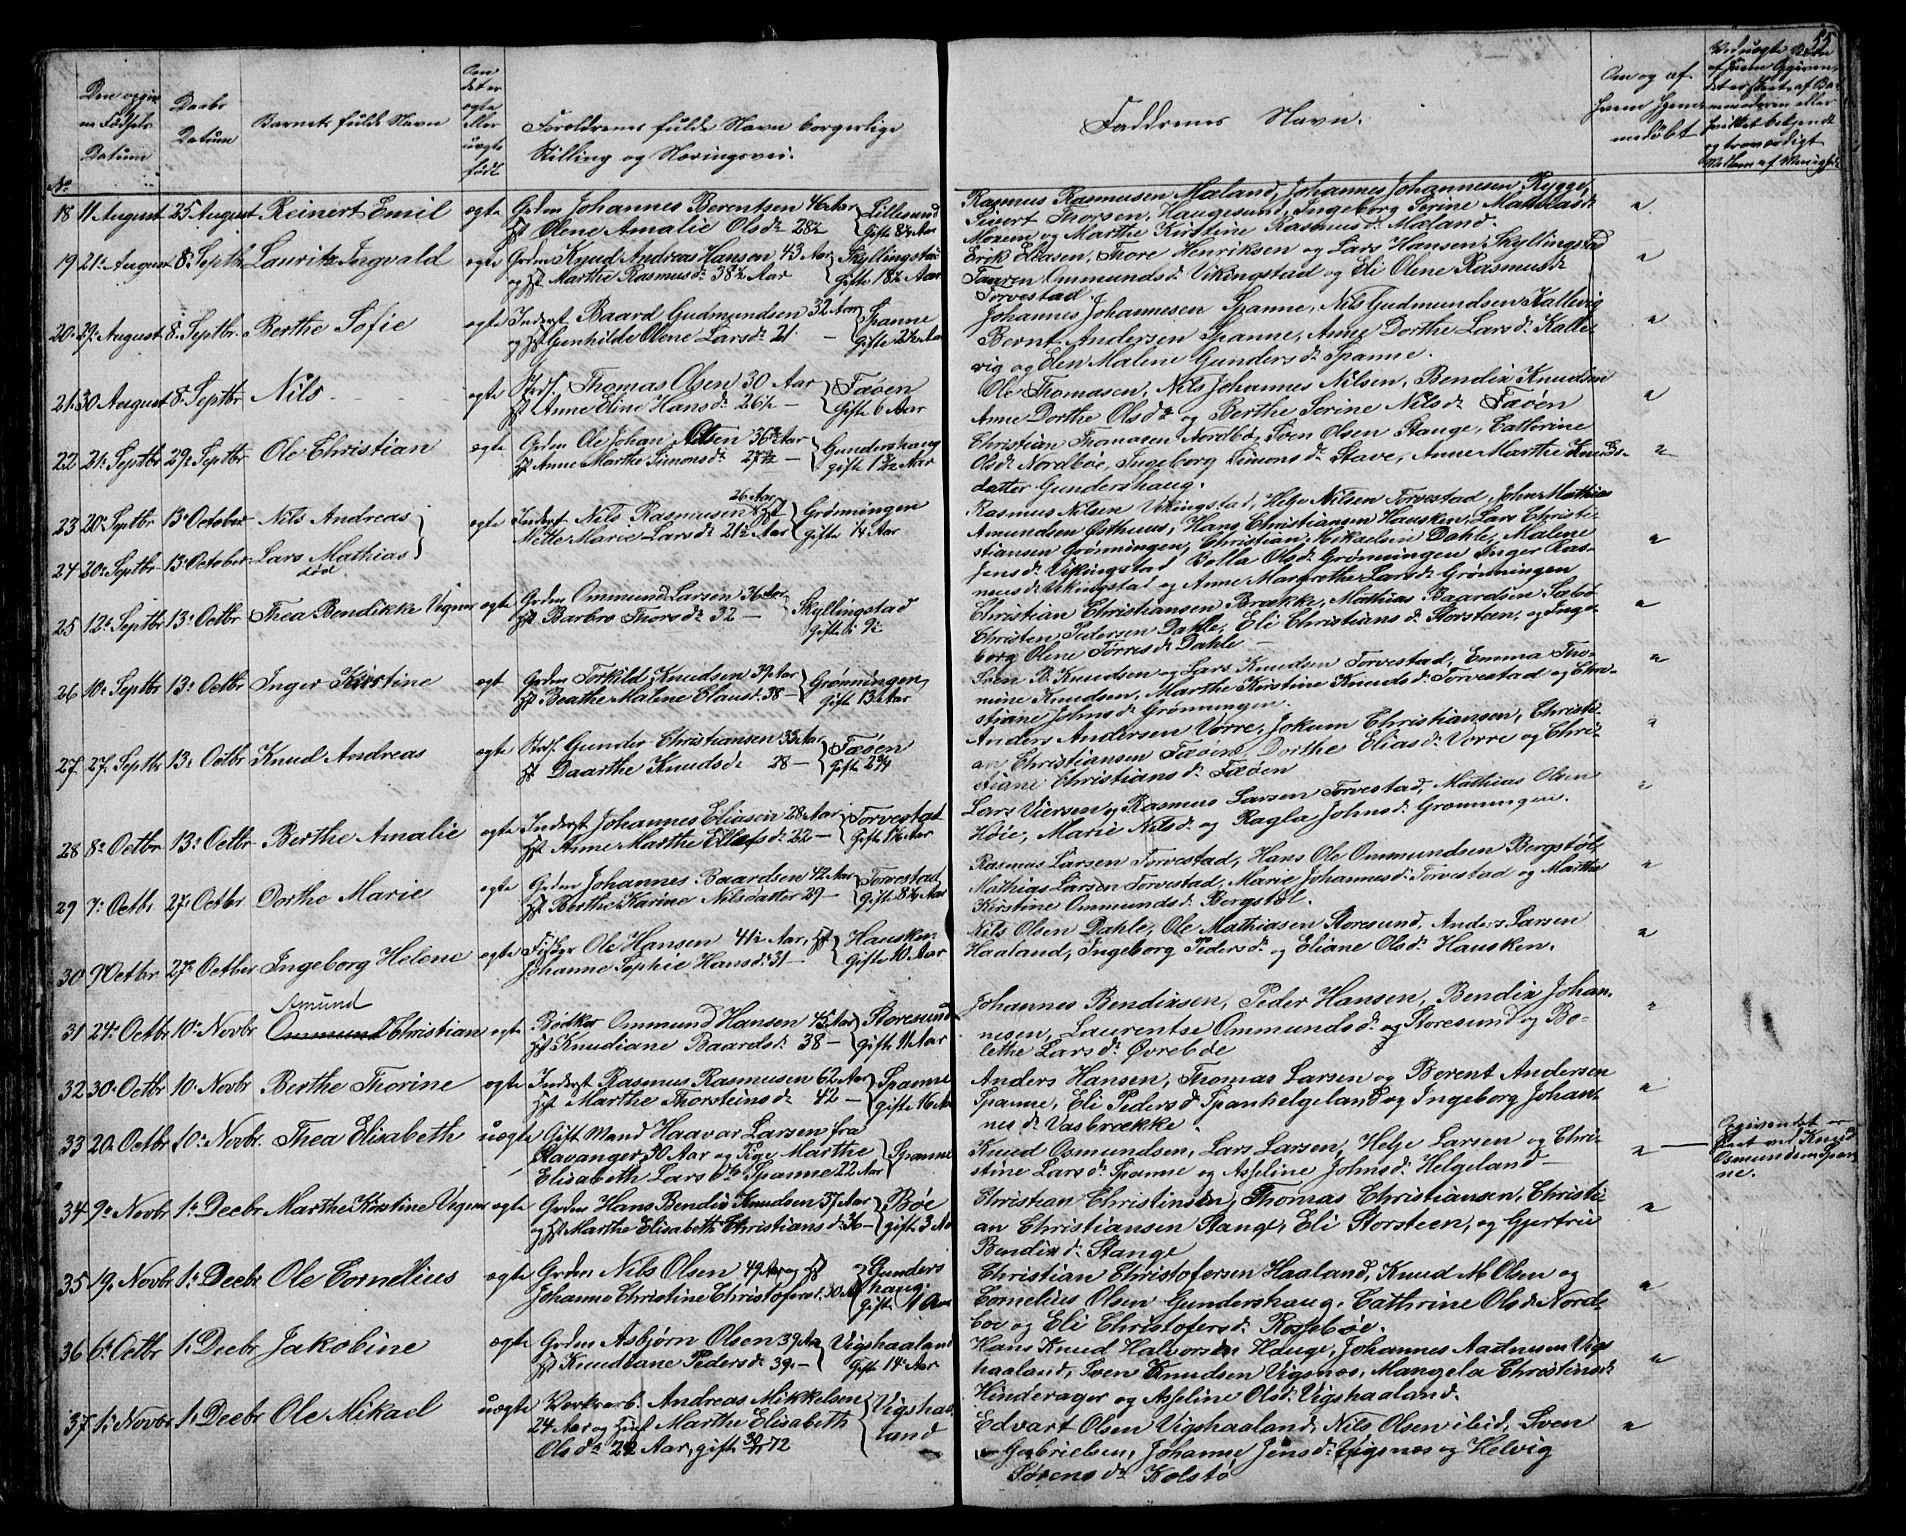 55
No
Den opgivne Fødsels Datum
Daabs Datum
Barnets fulde Navn
Om det er ægte eller uægte født
Forældrenes fulde Navn borgerlige Stilling og Næringsvei.
Faddrenes Navn.
Om og af hvem hjemmedøbt
18 11 August 25 August Reinert Emil ægte Grdm Johannes Berentsen 46 Aar Lillesund
Hst Olene Amalie Olsdr 28½ Gifte 8½ Aar
Rasmus Rasmusen Mæland, Johannes Johannesen Rygge,
Sivert Thorsen, Haugesund, Ingeborg Serine Mathiasdr
Moxem og Marthe Kirstine Rasmusdr Mæland.
19 21 August 8 Septbr Lauritz Ingvald ægte Grdm Knud Andreas Hansen 43 Aar Skyllingstad
og Hst Marthe Rasmusdr 38½ Aar Gifte 18½ Aar
Erik Eliasen, Thore Henriksen og Lars Hansen Skyllingstad
Tauren Ommundsdr Vikingstad og Eli Olene Rasmusdr
Torvestad.
20 29 August 8 Septbr Berthe Sofie ægte Inderst Baard Gudmundsen 32 Aar Spanne
og Hst Gunhilde Olene Larsdr 21 — Gifte 2½ Aar
Johannes Johannesen Spanne, Nils Gudmundsen Kallevig
Bernt Andersen Spanne, Anne Dorthe Larsdr Kalle-
vig og Elen Malene Gundersdr Spanne.
21 30 August 8 Septbr Nils ægte Thomas Olsen 30 Aar Fæøen
Hst Anne Eline Hansdr 26½ — Gifte 6 Aar
Ole Thomasen, Nils Johannes Nilsen, Bendix Knudsen
Anne Dorthe Olsdr og Berthe Serine Nilsdr Fæøen
22 21 Septbr 29 Septbr Ole Christian ægte Grdm Ole Johan Olsen 36 Aar Gundershaug
Hst Anne Marthe Simonsdr 27½ — gifte 1½ Aar
Christian Thomasen Nordbø, Sven Olsen Stange, Cathrine
Olsdr Nordbøe, Ingeborg Simonsdr Stave, Anne Marthe Knuds-
datter Gundershaug.
23 20 Septbr 13 October Nils Andreas ægte Inderst Nils Rasmusen 26 Aar Hst Grønningen
Mette Marie Larsdr 21½ Aar Gifte 1½ Aar
24 20 Septbr 13 October Lars Mathias
død
Rasmus Nilsen Vikingstad, Helje Nilsen Torvestad John Mathias
Amundsen Østhuus, Hans Christiansen Hausken, Lars Christi-
stiansen Grønningen, Christian Mikaelsen Dahle, Malene
Jensdr Vikingstad Bolla Olsdr Grønningen Inger Ras-
musdr Vikingstad og Anne Margrethe Larsdr Grønningen
25 12 Septbr 13 Octbr Thea Bendikke Vigner ægte Grdm Ommund Larsen 36 Aar Skyllingstad
Hst Barbro Thorsdr 32 — Gifte i 9½
Christian Christiansen Brække, Mathias Baardsen Sæbø
Christen Pedersen Dahle, Eli Christiansdr Storsteen, og Inge-
borg Olene Torresdr Dahle —
26 10 Septbr 13 Octbr Inger Kirstine ægt Grdm Torkild Knudsen 39 Aar Grønningen
Hst Beathe Malene Clausdr 38 — Gifte 13 Aar
Sven B. Knudsen og Lars Knudsen Torvestad, Emma Tho-
mine Knudsen, Marthe Kirstine Knudsdr Torvestad og Chri-
stiane Johnsdr Grønningen.
27 27 Septbr 13 Octbr Knud Andreas ægte Gunder Christiansen 33 Aar Fæøen
Hst Daarthe Knudsdr 28 — Gifte 2¾
Anders Andersen Vorre, Jokum Christiansen, Christi-
an Christiansen Fæøen, Dorthe Eliasdr Vorre og Chri-
stiane Christiansdr Fæøen
28 8 Octbr 13 Octbr Berthe Amalie ægte Inderst Johannes Eliasen 28 Aar Torvestad
Hst Anne Marthe Ellefsdr 22 — Gifte 1½ Aar
Lars Viersen og Rasmus Larsen Torvestad, Mathias Olsen
Høie, Marie Nilsdr og Ragla Johnsdr Grønningen.
29 7 Octbr 27 Octbr Dorthe Marie ægte Grdm Johannes Baardsen 42 Aar Torvestad
Hst Berthe Karine Nilsdatter 29 — gifte 8½ Aar
Rasmus Larsen Torvestad, Hans Ole Ommundsen Bergstøl,
Mathias Larsen Torvestad, Marie Johannesdr Torvestad og Marthe
Kirstine Ommundsdr Bergstøl.
30 9 Octbr 27 Octber Ingeborg Helene ægte Fisker Ole Hansen 41½ Aar, Hst Hausken
Johanne Sophie Hansdr 31 — Gifte 10 Aar
Nils Olsen Dahle, Ole Mathiasen Storesund, Anders Larsen
Haaland, Ingeborg Pedersdr og Eliane Olsdr Hausken.
Amund
31 24 Octbr 10 Novbr Ommund Christian ægte Bødker Ommund Hansen 45 Aar Storesund
Hst Knudiane Baardsdr 38 — gifte 11 Aar
Johannes Bendixsen, Peder Hansen, Bendix Johan-
nesen, Laurentse Ommundsdr og Storesund og Bo-
lethe Larsdr Øvrebøe
32 30 Octbr 10 Novbr Berthe Thorine ægte Inderst Rasmus Rasmusen 62 Aar Spanne
Hst Marthe Thorsteinsdr 42 — gifte 16 Aar
Anders Hansen, Thomas Larsen og Berent Andersen
Spanne, Eli Pedersdr Spanhelgeland og Ingeborg Johan-
nesdr Vasbrække.
33 20 Octbr 10 Novbr. Thea Elisabeth uægte Gift Mand Haavar Larsen fra
Stavanger, 30 Aar og Pige Marthe Spanne
Elisabeth Larsdr Spanne 22 Aar
Knud Osmundsen, Lars Larsen, Helje Larsen og Chri-
stine Larsdr Spanne og Asseline Johnsdr Helgeland —
Opgivendet er
skeet ved Knud
Osmundsen Span-
ne.
34 9 Novbr 1 Decbr Marthe Kirstine Vigner ægte Grdm Hans Bendix Knudsen 37 Aar Bøe
og Hst Marthe Elisabeth Christiansdr 36 — gifte 3 Aar
Christian Christinsen, Thomas Christiansen, Christi-
an Christiansen Stange, Eli Storsteen, og Gjertrue
Bendixdr Stange
35 19 Novbr 1 Decbr Ole Cornelius ægte Grdm Nils Olsen 49 Aar og Hst Gunders
Johanne Christine Christofersdr 30 Aar haug
Gifte 1 Aar
Christian Christofersen Haaland, Knud M Olsen og
Cornelius Olsen Gundershaug, Cathrine Olsdr Nord-
bøe og Eli Christofersdr Rossebøe.
36 6 Octbr 1 Decbr Jakobine ægte Grdm Asbjørn Olsen 39 Aar Vigshaaland
Hst Knudiane Pedersdr 39 — Gifte 14 Aar
Hans Knud Halvorsen Hauge, Johannes Aadnesen Vigs
haaland, Sven Knudsen Vigsnes, Mangela Christinsdr
Hinderager og Asseline Olsdr Vigshaaland.
37 1 Novbr 1 Decbr Ole Mikael uægte Værkarb. Andreas Mikkelsen Vigshaa-
24 Aar og Marthe Elisabeth land
Olsdr 22 Aar, gift 72
Edvart Olsen Vigshaaland, Nils Olsen ibid, Sven
Gabrielsen, Johanne Jensdr Vigsnes og Helvig
Sørensdr Kolstø